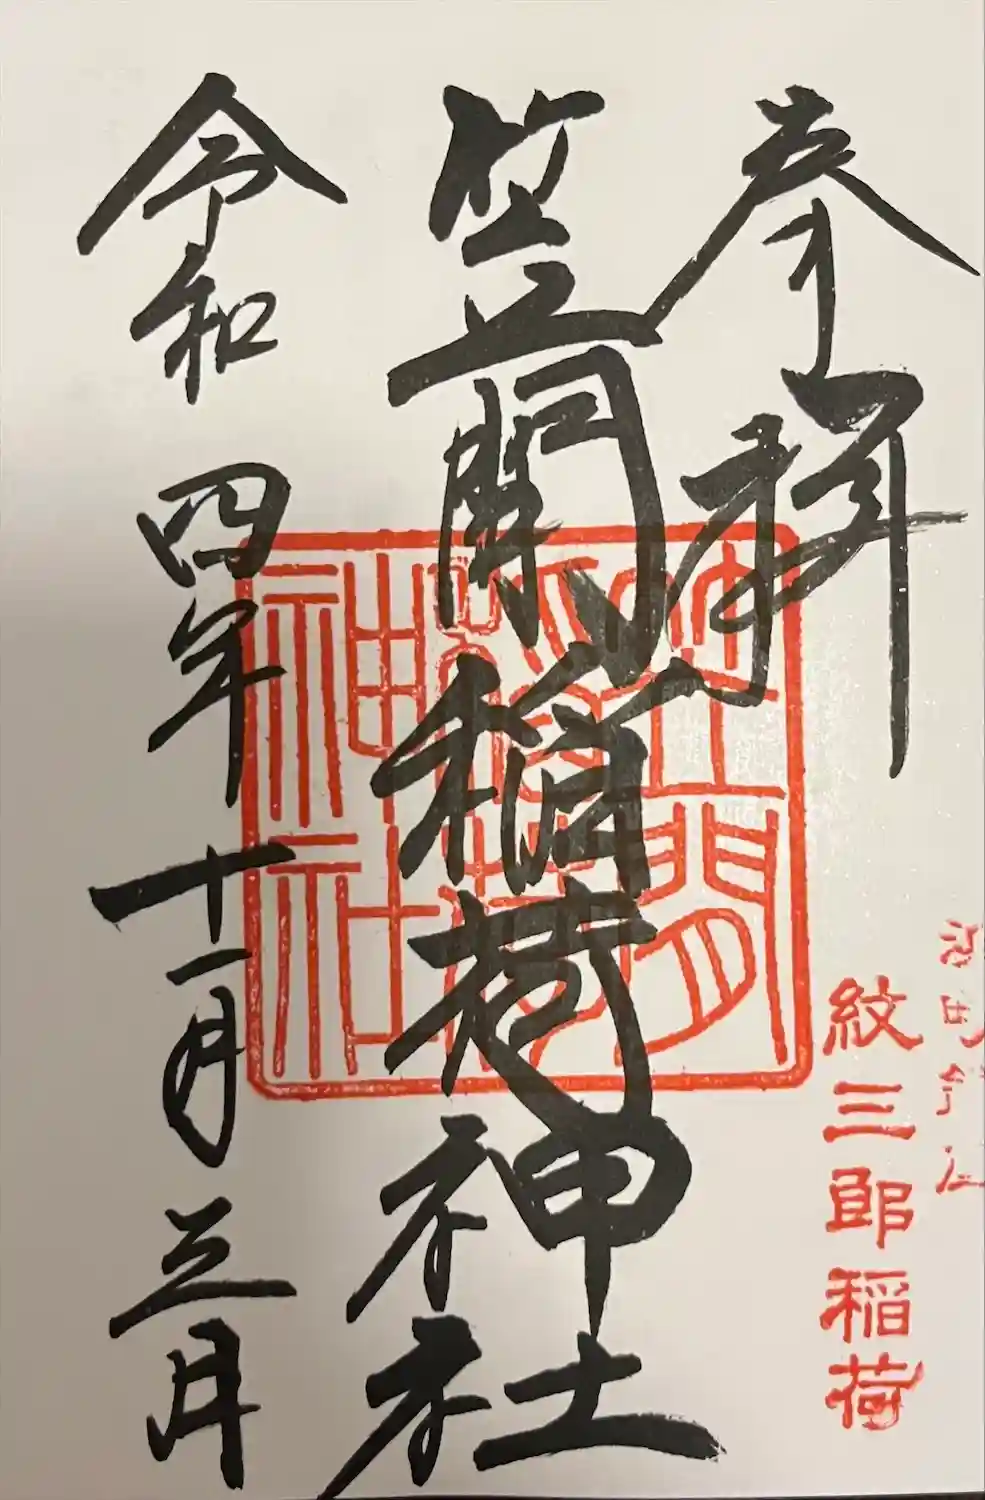 奉拝
紋三郎稲荷
笠間稲荷神社
笠間
稲荷
神社
令和四年十一月三日